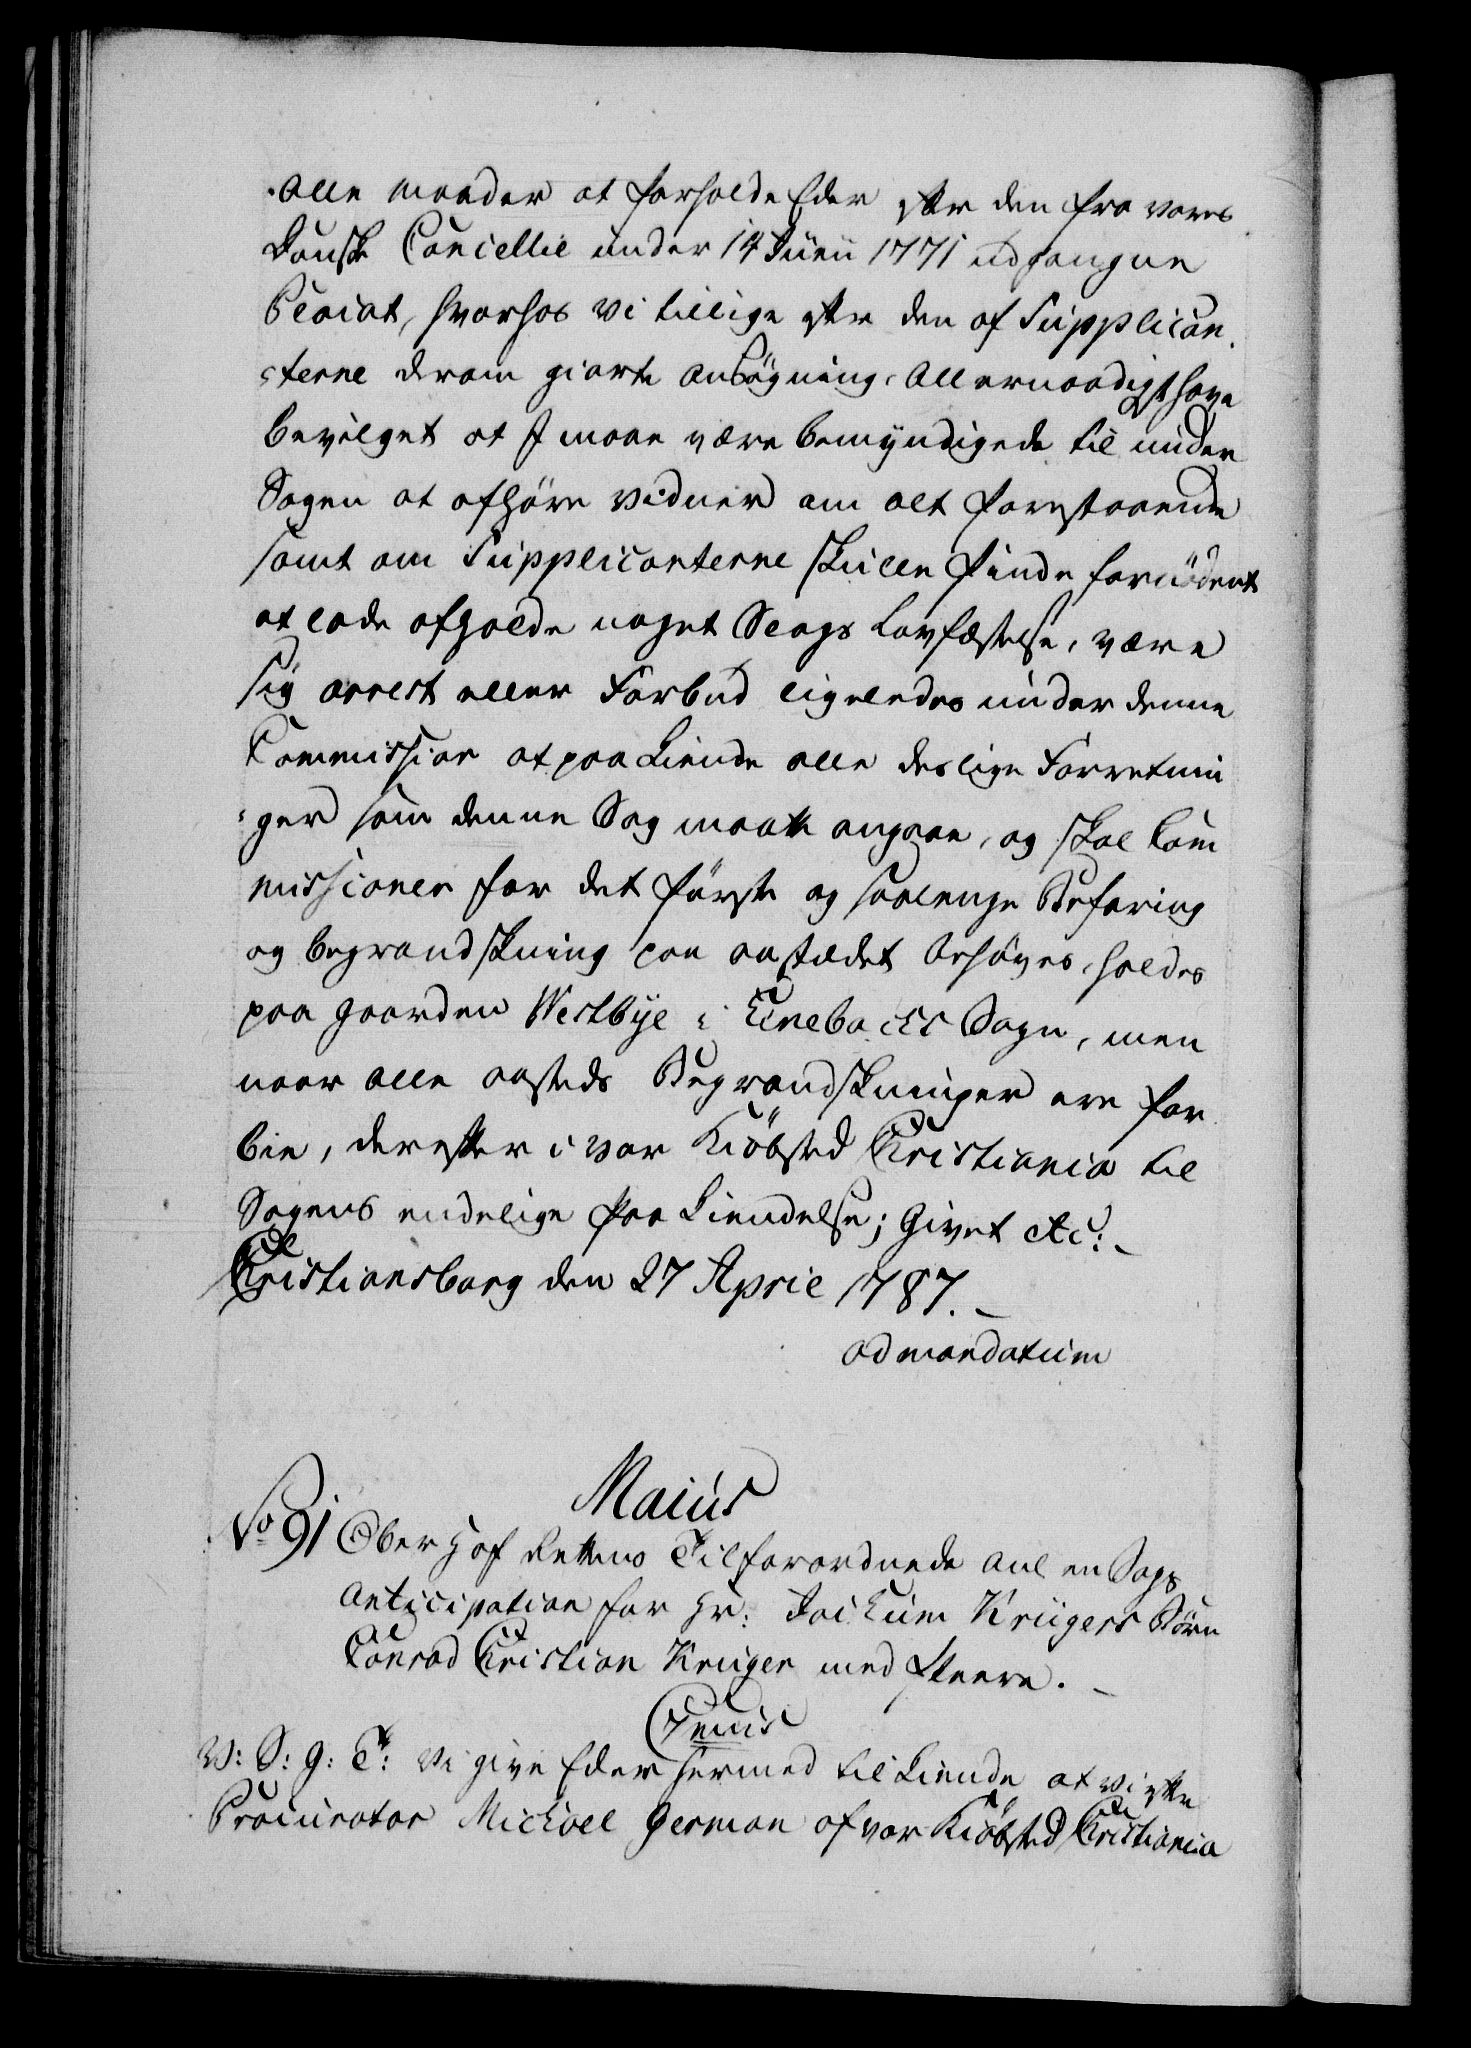 alle maader at forholde Eder efter den fra vores
danske Cancellie under 14 Junii 1771 udgangne
Placat, hvorhos vi tillige efter den af Supplican¬
terne derom giorte Ansøgning, Allernaadigst have
bevilget at I maae være bemyndigede til under
Sagen at afhøre Vidner om alt forestaaende
samt om Supplicanterne skulle finde fornødent
at lade afholde noget Slags Lovfæstelse, være
sig arrest eller Forbud ligeledes under denne
Commission at paakiende alle deslige Forretnin
ger som denne Sag maatte angaae, og skal Com
missionen for det første og saalenge Befaring
og begrandskning paa aastædet behøves, holdes
paa Gaarden Westbye i Enebaks Sogn, men
naar alle aasteds Begrandskninger ere for
bie, derefter i vor Kiöbsted Christiania til
Sagens endelige Paakiendelse; Givet etc:
Christiansborg den 27 April 1787.
ad mandatum
Maius
No 91 Ober Hof Rettens Tilforordnede anl en Sags
Anticipation for Hr: Jochum Krügers Børn
Conrad Christian Krüger med fleere.
C7mus
V: S: G: T: Vi give Eder hermed tilkiende at vi efter
Procurator Michael German af vor Kiöbsted Christiania